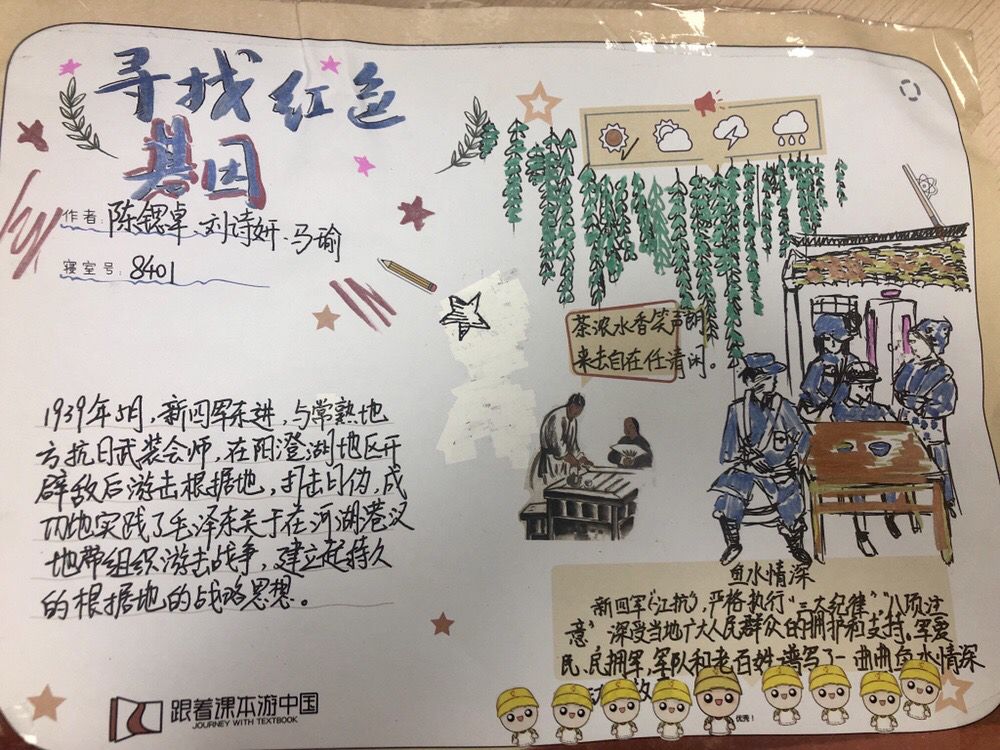 寻找红色
基因
作者：陈锶卓 刘诗妍 马瑜
寝室号：8401
茶浓水香笑声朗
来去自在任清闲。
1939年5月，新四军东进，与常熟地
方抗日武装会师，在阳澄湖地区开
辟敌后游击根据地，打击日伪，成
功地实践了毛泽东关于在河湖港汊
地带组织游击战争，建立起持久
的根据地的战略思想。
鱼水情深
新四军（“江抗”），严格执行“三大纪律”，“八项注
意”深受当地广大人民群众的拥护和支持。军爱
民、民拥军，军队和老百姓谱写了一曲曲鱼水情深
优秀！
跟着课本游中国
JOURNEY WITH TEXTBOOK